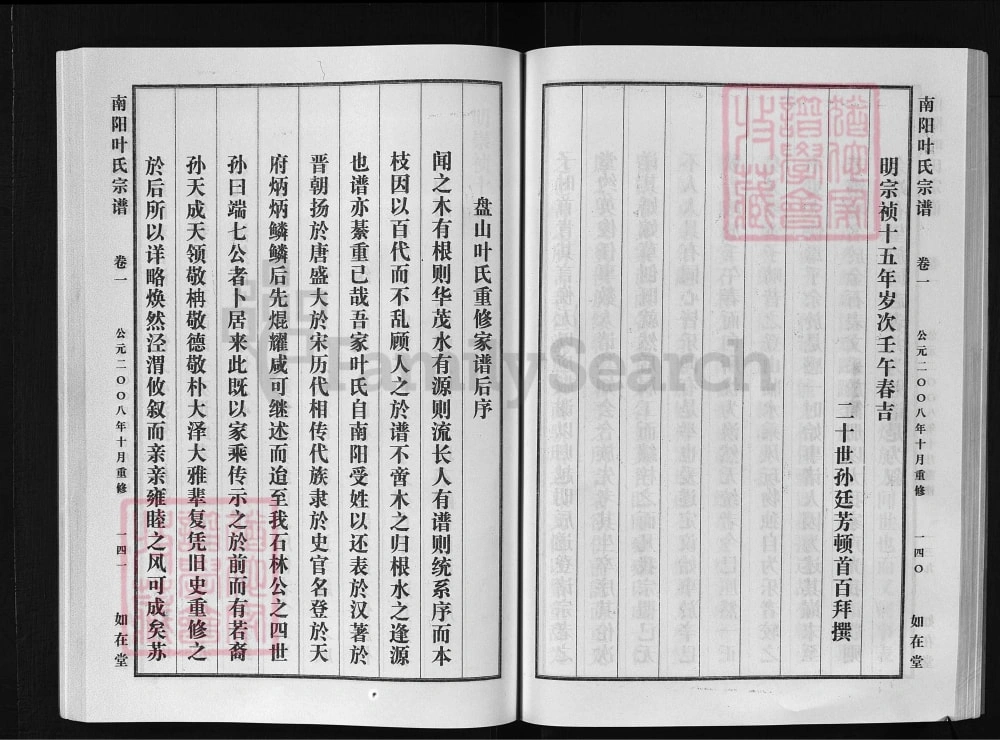 南阳叶氏宗谱 卷一 公元二〇〇八年十月重修 一四〇 如在堂
明宗祯十五年岁次壬午春吉
二十世孙廷芳顿首百拜撰
盘山叶氏重修家谱后序
闻之木有根则华茂水有源则流长人有谱则统系序而本
枝因以百代而不乱顾人之於谱不啻木之归根水之逢源
也谱亦綦重已哉吾家叶氏自南阳受姓以还表於汉著於
晋朝扬於唐盛大於宋历代相传代族隶於史官名登於天
府炳炳鳞鳞后先焜耀咸可继述而迨至我石林公之四世
孙曰端七公者卜居来此既以家乘传示之於前而有若裔
孙天成天领敬柟敬德敬朴大泽大雅辈复凭旧史重修之
於后所以详略焕然泾渭攸叙而亲亲雍睦之风可成矣苏
南阳叶氏宗谱 卷一 公元二〇〇八年十月重修 一四一 如在堂
FamilySearch